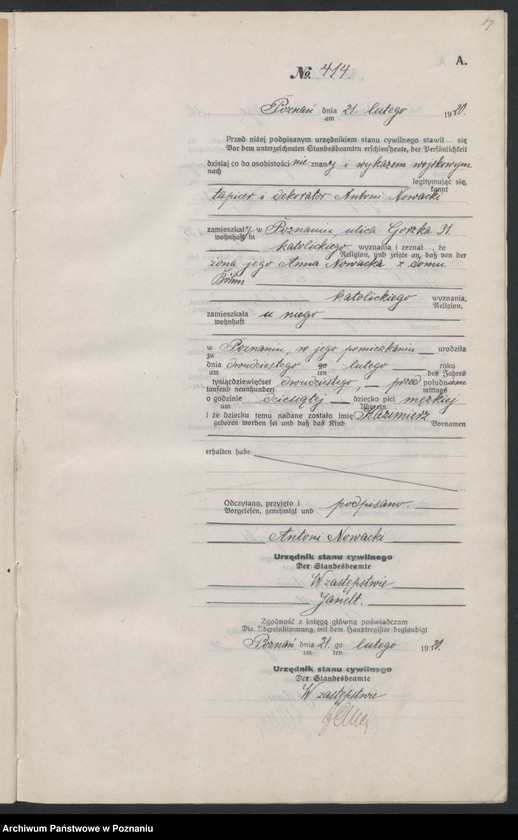 17
A.
No. 414.
Poznań dnia 21 lutego 1920.
am
Przed niżej podpisanym urzędnikiem stanu cywilnego stawił się
Vor dem unterzeichneten Standesbeamten erschien heute, der Persönlichkeit
dzisiaj co do osobistości nie znany i wykazem wojskowym
nach
legitymując się,
kannt
tapicer i dekorator Antoni Nowacki
zamieszkały w Poznaniu, ulica Gorzka 31
wohnhaft in
katolickiego wyznania i zeznał, że
Religion, und zeigte an, daß von der
żona jego Anna Nowacka z domu
Böhm
katolickiego wyznania,
Religion,
zamieszkała u niego
wohnhaft
w Poznaniu, w jego pomieszkaniu urodziła
zu
dnia dwudziestego go lutego roku
am ten des Jahres
tysiącdziewięćset dwudziestego, przed południem
tausend neunhundert mittags
o godzinie dziesiątej dziecko płci męzkiej
um
i że dziecku temu nadane zostało imię Kazimierz
geboren worden sei und daß das Kind Vornamen
erhalten habe.
Odczytano, przyjęto i podpisano.
Vorgelesen, genehmigt und
Antoni Nowacki
Urzędnik stanu cywilnego
Der Standesbeamte
W zastępstwie
Janelt.
Zgodność z księgą główną poświadczam
Die Übereinstimmung mit dem Hauptregister beglaubigt
Poznań dnia 21. go lutego 1920.
am ten
Urzędnik stanu cywilnego
Der Standesbeamte
W zastępstwie
Archiwum Państwowe w Poznaniu